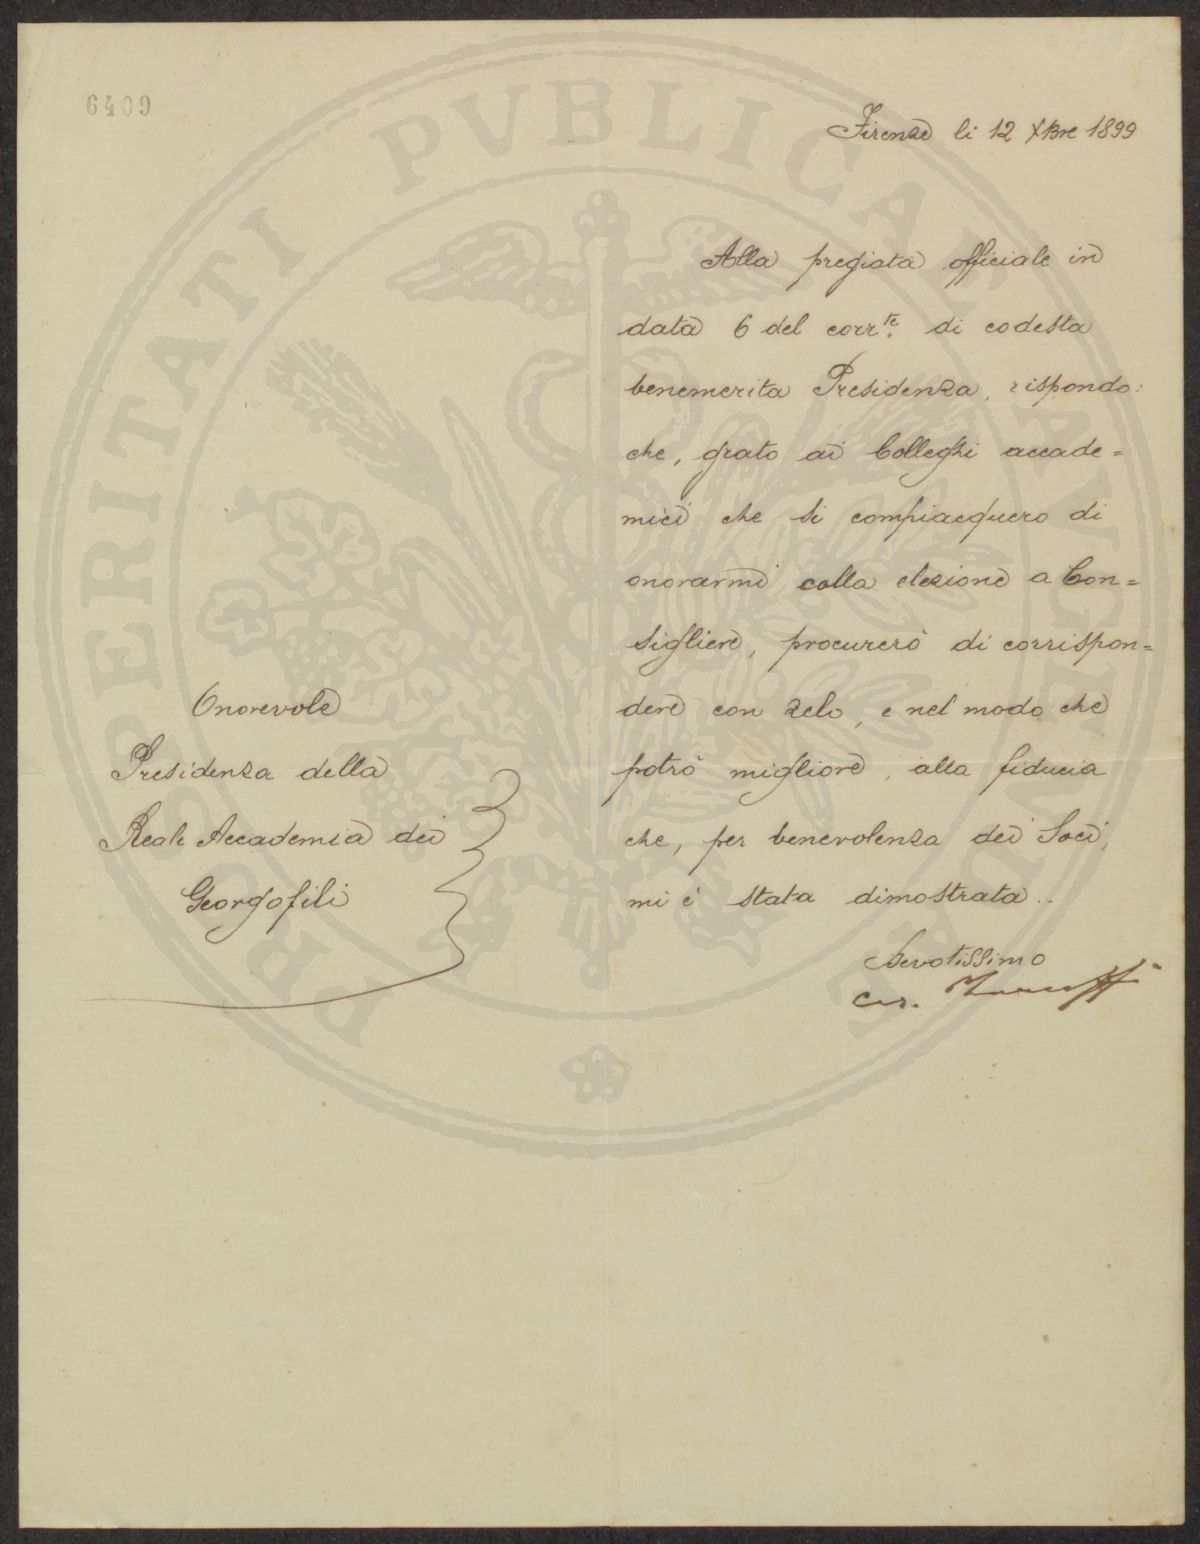 6409
Firenze li 12 Xbre 1899
Alla pregiata officiale in
data 6 del corr.te di codesta
benemerita Presidenza, rispondo:
che, grato ai Colleghi accade=
mici che si compiacquero di
onorarmi colla elezione a Con=
sigliere, procurerò di corrispon=
dere con zelo, e nel modo che
potrò migliore, alla fiducia
che, per benevolenza dei Soci,
mi è stata dimostrata.
Devotissimo
Ces.
Onorevole
Presidenza della
Reale Accademia dei
Georgofili
PROSPERITATI PVBLICAE AVGENDAE